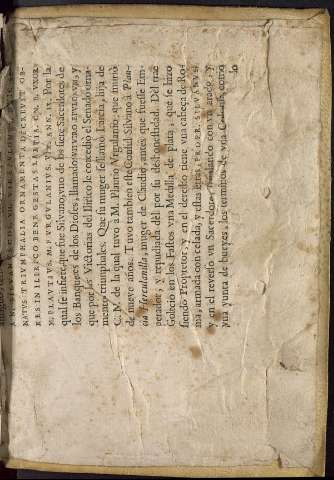 NATVS TRIVMPHALIA ORNAMENTA DECREVIT OB-
RES IN ILIRICO BENE GESTAS LARTIA. CN. F. VXOR.
M. PLAVTIVS. M. F. VRGVLANIVS. VIX. ANN. IX. Por la
qual se infiere, que fue Silvano, vno de los siete Sacerdotes de
los Banquetes de los Dioses, llamado VII VIRO EPVLONVM, y
que por las Victorias del Ilirico le concedio el Senado orna-
mentos triumphales. Que su muger se llamó Larcia, hija de
C. M. de la qual tuvo à M. Plautio Vrgulanio, que murió
de nueve años. Tuvo tambien este Consul Silvano à Plau-
cia Herculanilla, muger de Claudio, antes que fuesse Em-
perador, y repudiada dèl por su deshonestidad. Del trae
Golcio en los Fastos vna Medalla de plata, que se hizo
siendo Propretor, y en el derecho tiene vna cabeça de Ro-
ma, armada con celada, y esta letra,
y en el reverso vn Sacerdote, Sacrificio con vn arado, y
vna yunta de bueyes, los terminos de vna Colonia, como
lo